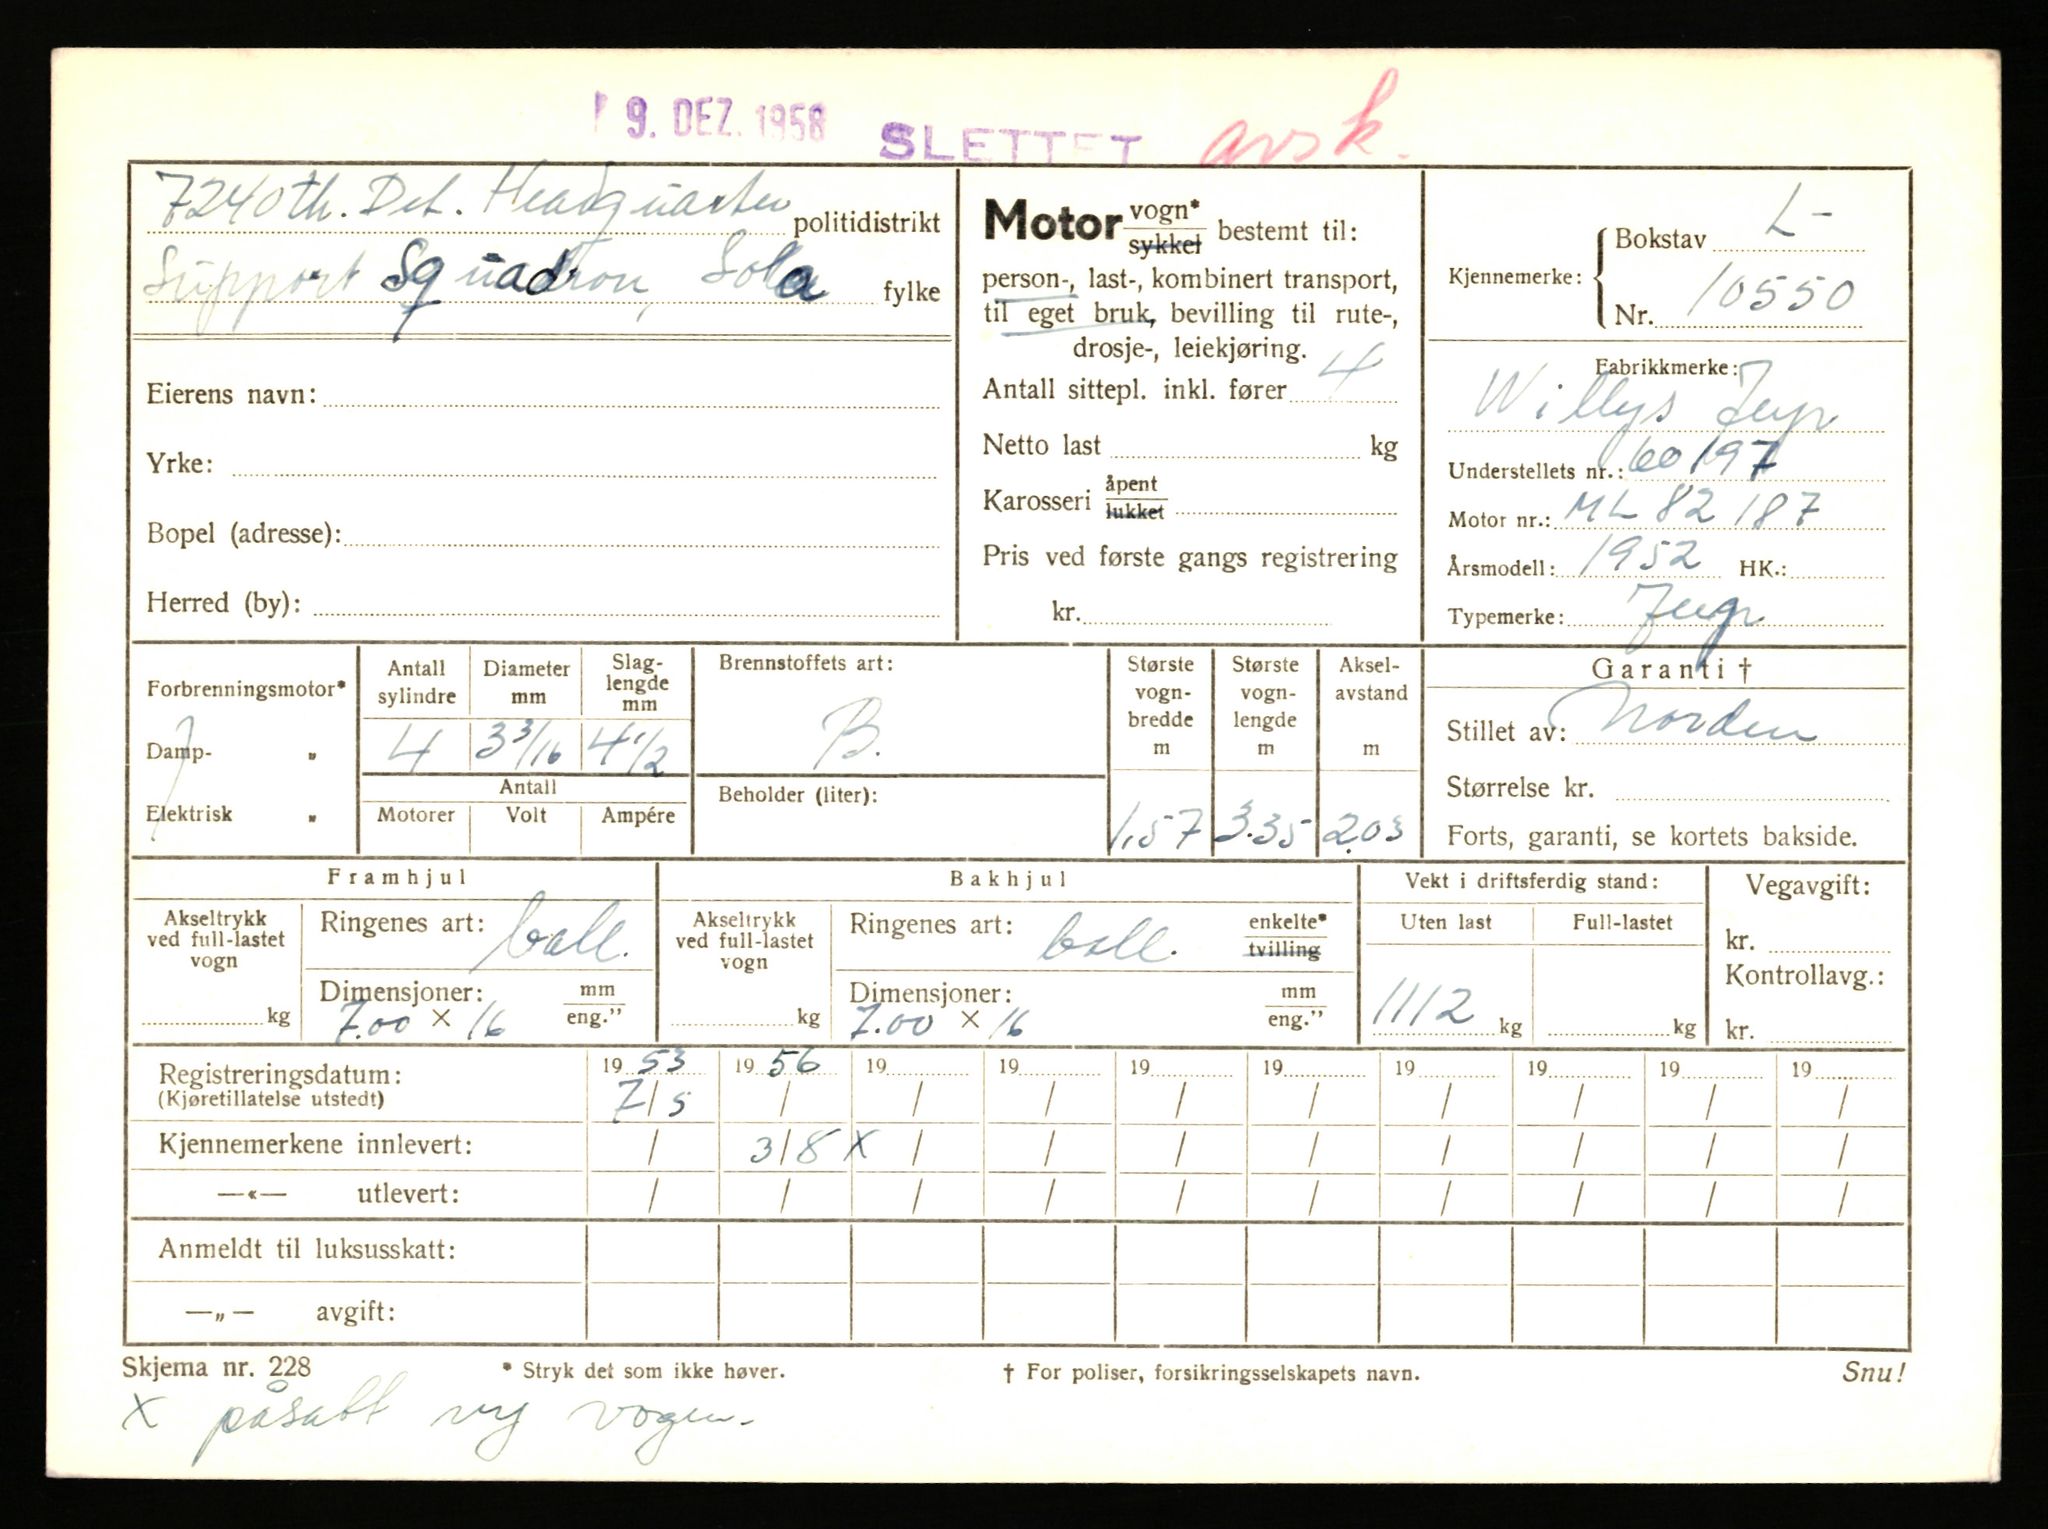 9. DEZ. 1958 SLETTET avsk.
7240th. Det. Headquarter politidistrikt
Support Squadron, Sola fylke
Eierens navn:
Yrke:
Bopel (adresse):
Herred (by):
Motor vogn* sykkel bestemt til:
person-, last-, kombinert transport,
til eget bruk, bevilling til rute-,
drosje-, leiekjøring.
Antall sittepl. inkl. fører 4
Netto last kg
Karosseri åpent lukket
Pris ved første gangs registrering
kr.
Kjennemerke: Bokstav L-
Nr. 10550
Fabrikkmerke:
Willys Jeep
Understellets nr.: 60197
Motor nr.: ML 82187
Årsmodell: 1952 HK.:
Typemerke: Jeep
Forbrenningsmotor*
Damp- „
Elektrisk „
Antall sylindre 4
Diameter mm 3 3/16
Slag-lengde mm 4 1/2
Antall
Motorer Volt Ampére
Brennstoffets art:
B.
Beholder (liter):
Største vogn-bredde m 1,57
Største vogn-lengde m 3.35
Aksel-avstand m 2.03
Garanti †
Stillet av: Norden
Størrelse kr.
Forts, garanti, se kortets bakside.
Framhjul
Akseltrykk ved full-lastet vogn
kg
Ringenes art: ball.
Dimensjoner: mm eng.”
7.00 × 16
Bakhjul
Akseltrykk ved full-lastet vogn
kg
Ringenes art: ball. enkelte* tvilling
Dimensjoner: mm eng.”
7.00 × 16
Vekt i driftsferdig stand:
Uten last Full-lastet
1112 kg kg
Vegavgift:
kr.
Kontrollavg.:
kr.
Registreringsdatum: 19 53 19 56 19 19 19 19 19 19 19 19
(Kjøretillatelse utstedt) 7/5 / / / / / / / / /
Kjennemerkene innlevert: / 3/8 x / / / / / / / /
—«— utlevert: / / / / / / / / / /
Anmeldt til luksusskatt:
—„— avgift:
Skjema nr. 228 * Stryk det som ikke høver. † For poliser, forsikringsselskapets navn. Snu!
x påsatt ny vogn.